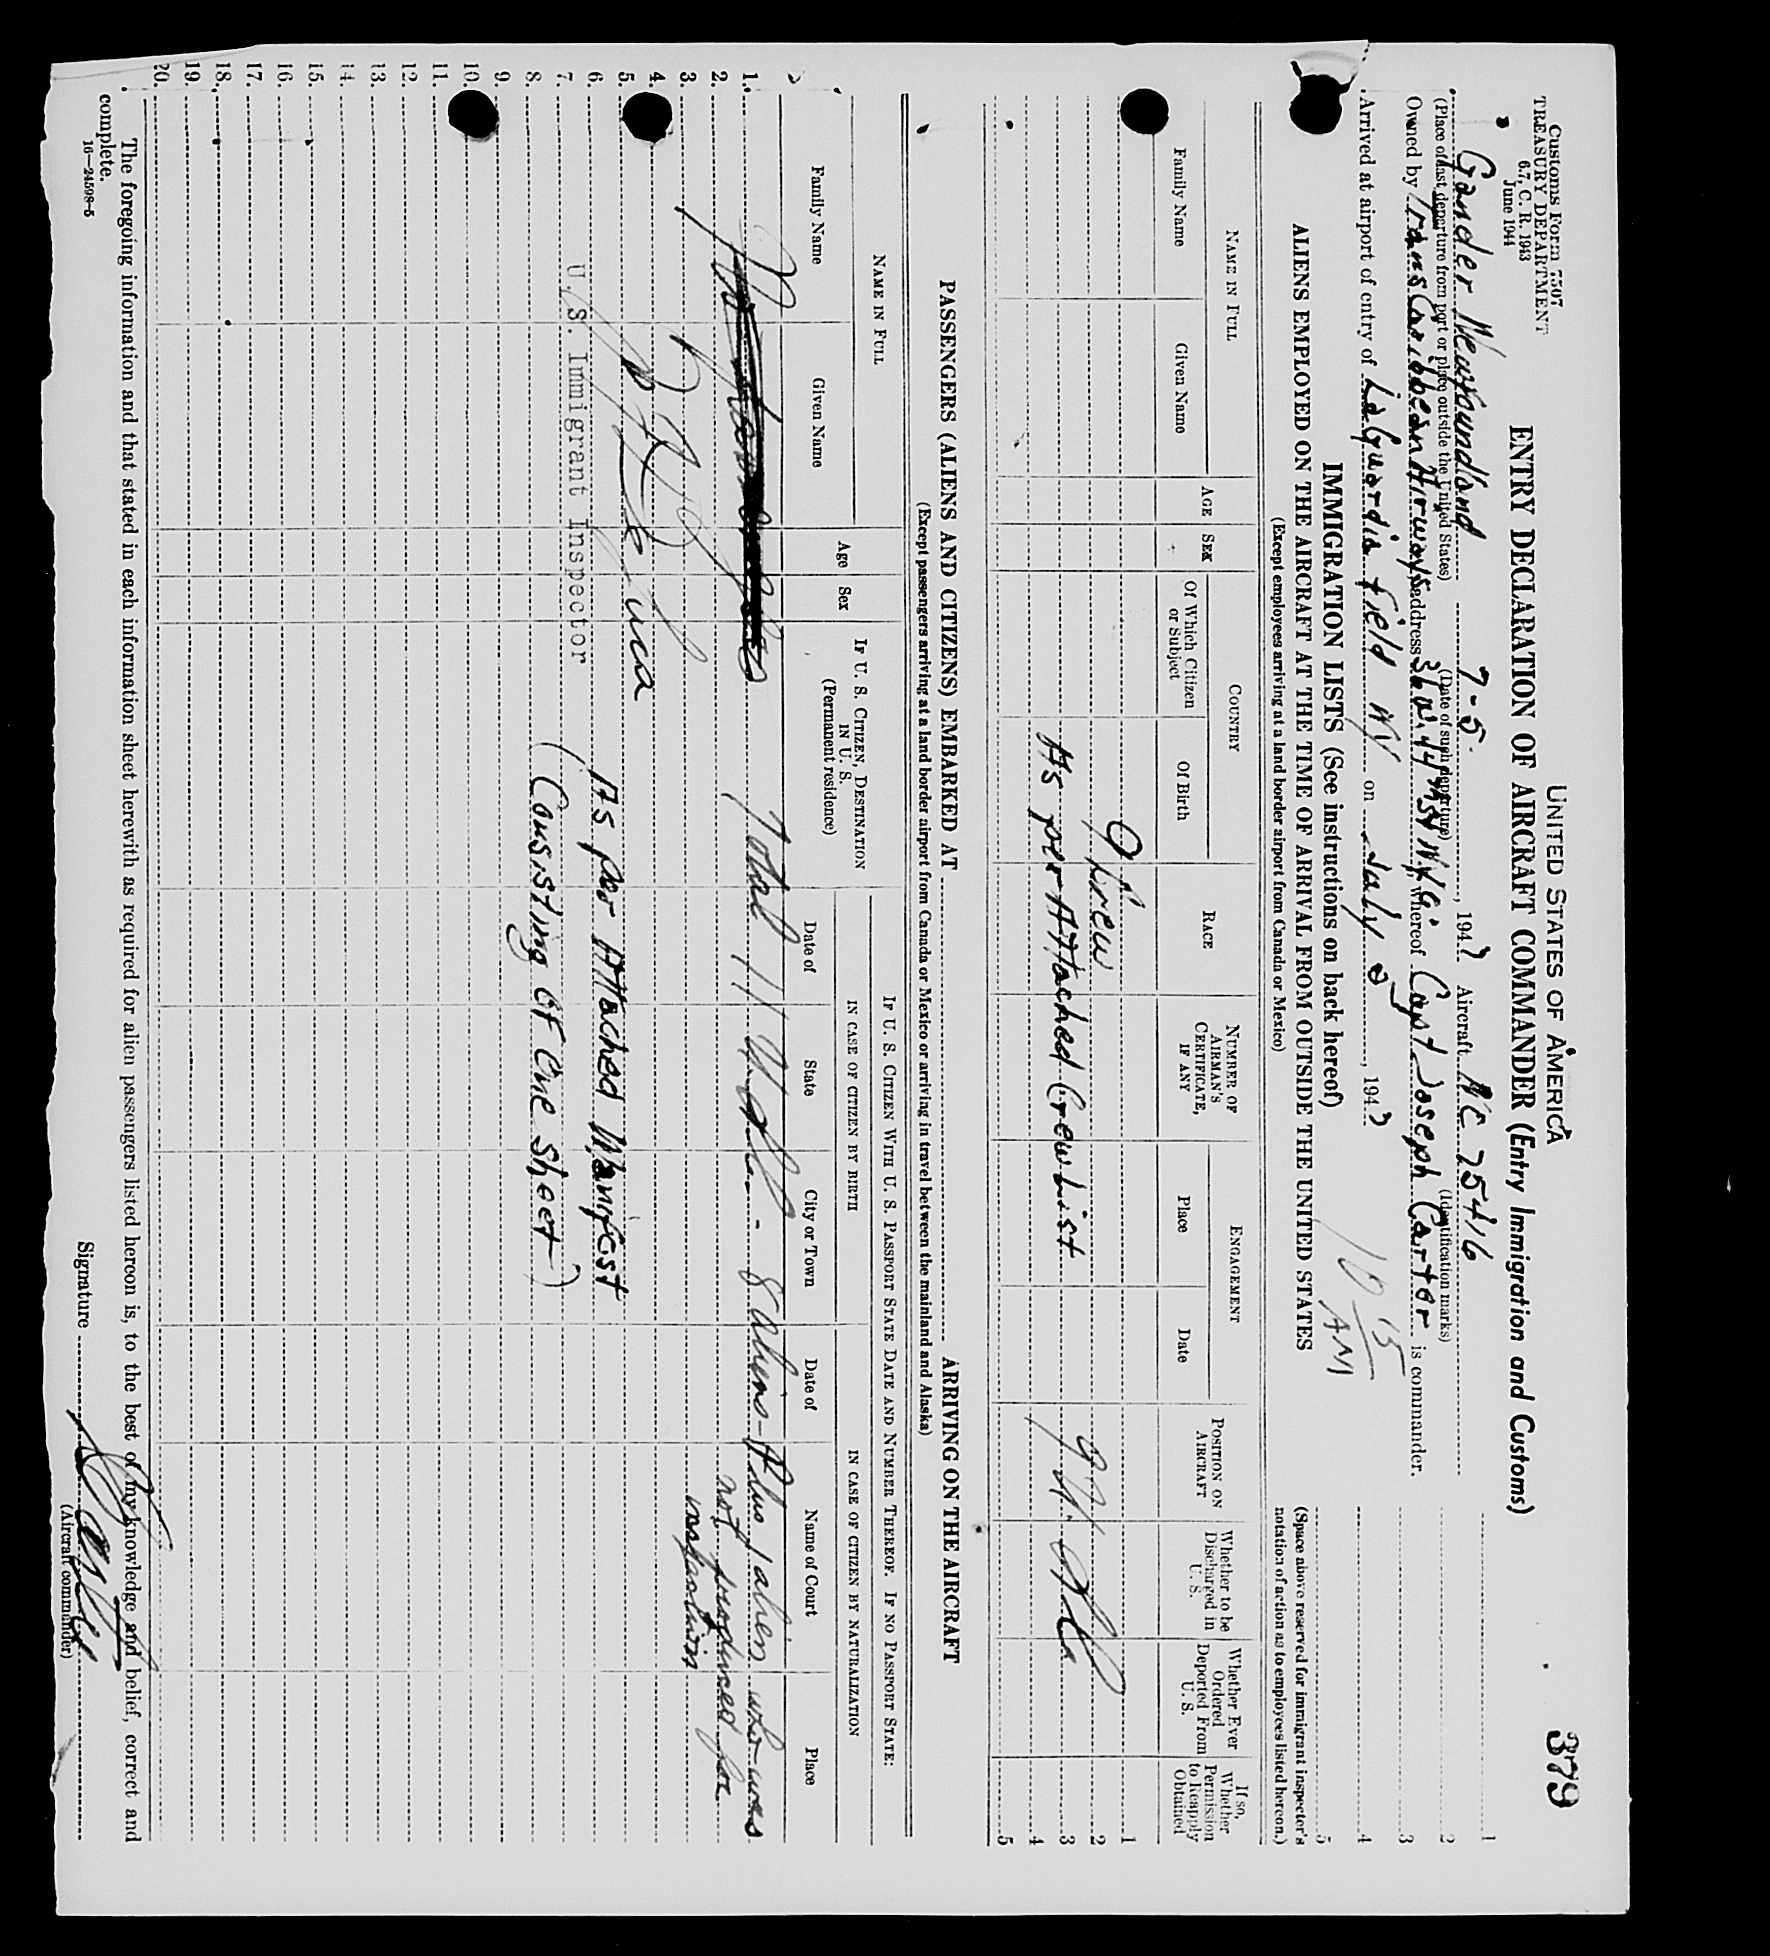 Customs Form 7507
TREASURY DEPARTMENT
6.7, C. R. 1943
June 1944
UNITED STATES OF AMERICA
379
ENTRY DECLARATION OF AIRCRAFT COMMANDER (Entry Immigration and Customs)
Gander Newfoundland 7-5, 1947 Aircraft NC 25416
(Place of last departure from port or place outside the United States) (Date of such departure) (Identification marks)
Owned by Trans Caribbean Airways, address, whereof Capt Joseph Carter is commander.
Arrived at airport of entry of LaGuardia Field NY on July, 1947
10 15 AM
IMMIGRATION LISTS (See instructions on back hereof)
ALIENS EMPLOYED ON THE AIRCRAFT AT THE TIME OF ARRIVAL FROM OUTSIDE THE UNITED STATES
(Except employees arriving at a land border airport from Canada or Mexico)
1
2
3
4
5
(Space above reserved for immigrant inspector's
notation of action as to employees listed hereon.)
NAME IN FULL
Family Name
Given Name
AGE
SEX
COUNTRY
Of Which Citizen or Subject
Of Birth
RACE
NUMBER OF AIRMAN'S CERTIFICATE, IF ANY
ENGAGEMENT
Place
Date
POSITION ON AIRCRAFT
Whether to be Discharged in U. S.
Whether Ever Ordered Deported From U. S.
If so, Whether Permission to Reapply Obtained
1
9 Crew 2
As per Attached Crew List 3
4
5
PASSENGERS (ALIENS AND CITIZENS) EMBARKED AT ARRIVING ON THE AIRCRAFT
(Except passengers arriving at a land border airport from Canada or Mexico or arriving in travel between the mainland and Alaska)
NAME IN FULL
Family Name
Given Name
Age
Sex
IF U. S. CITIZEN, DESTINATION IN U. S.
(Permanent residence)
IF U. S. CITIZEN WITH U. S. PASSPORT STATE DATE AND NUMBER THEREOF. IF NO PASSPORT STATE:
IN CASE OF CITIZEN BY BIRTH
IN CASE OF CITIZEN BY NATURALIZATION
Date of
State
City or Town
Date of
Name of Court
Place
1. Total 11 - 8 aliens - Plus 1 alien who was
2. not produced for
3. inspection
4.
5.
6. As per Attached Manifest
7. U. S. Immigrant Inspector
8. (Consisting of One Sheet)
9.
10.
11.
12.
13.
14.
15.
16.
17.
18.
19.
20.
The foregoing information and that stated in each information sheet herewith as required for alien passengers listed hereon is, to the best of my knowledge and belief, correct and
complete.
16—24598-5
Signature
(Aircraft commander)